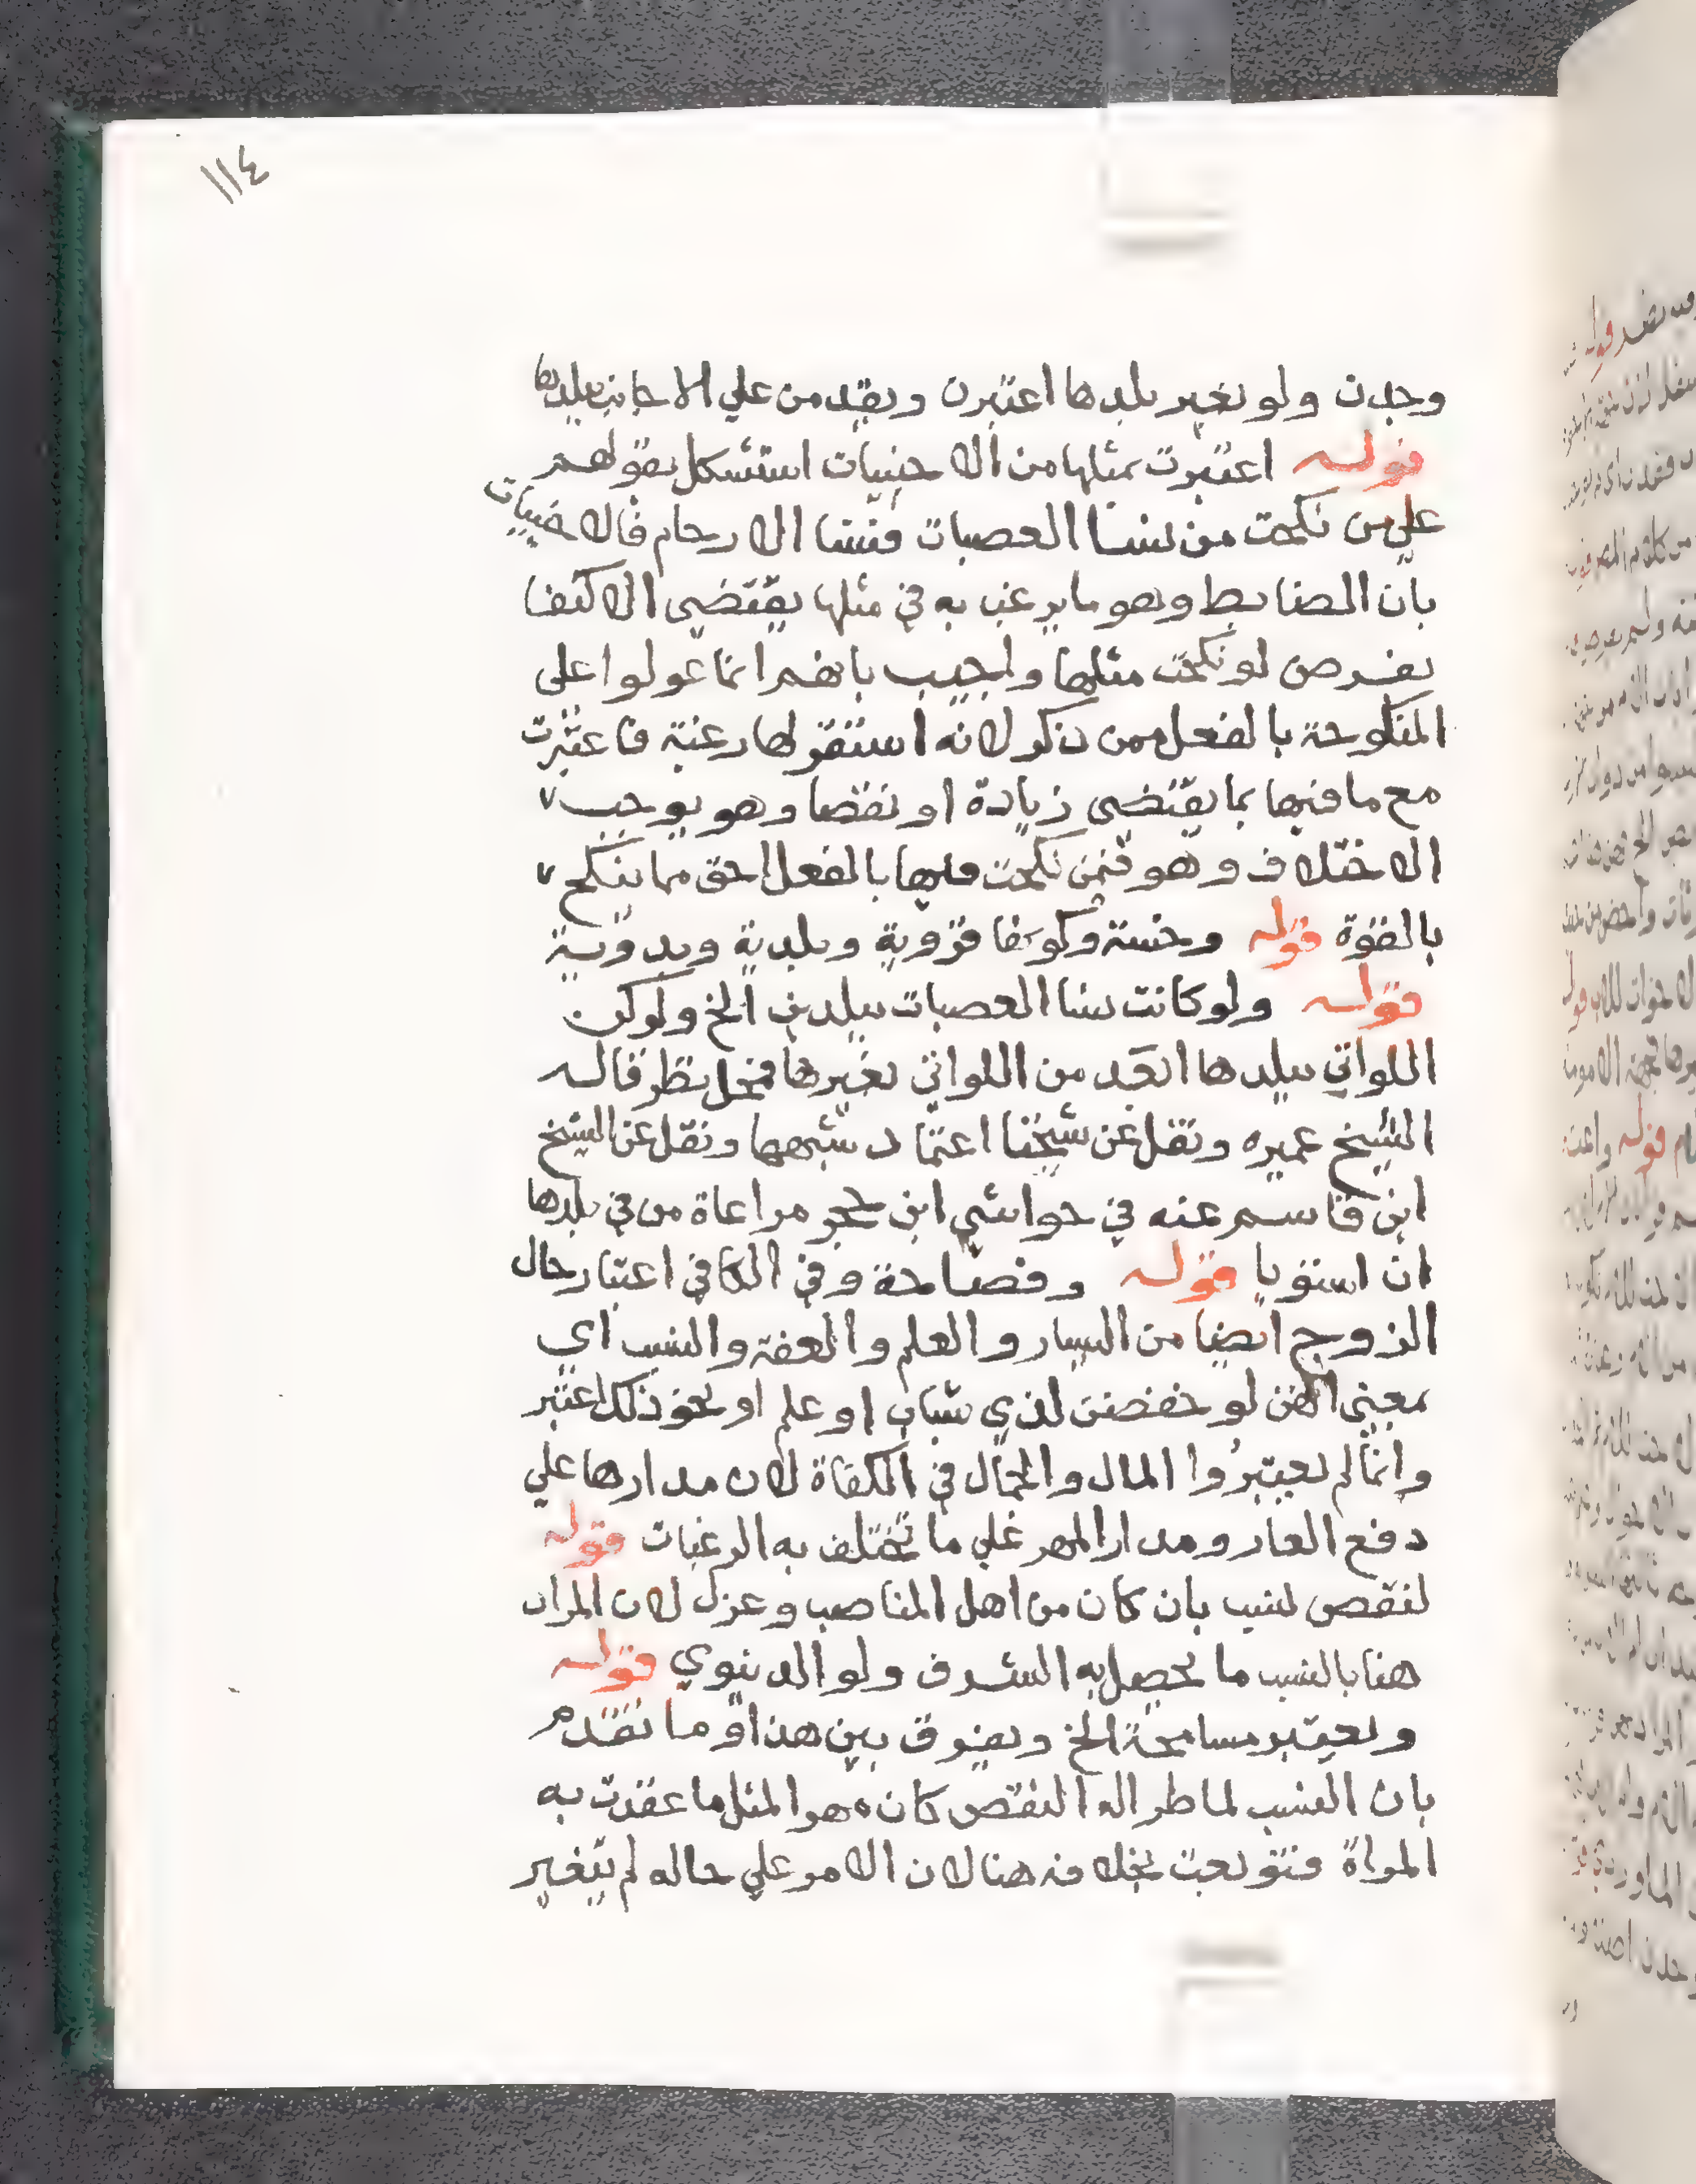 ١١٤
وجدن ولو بغير بلدها اعتبرن ويقدمن علي الاجانب ببلدها
قوله اعتبرت بمثلها من الاجنبيات استشكل بقولهم
علي من نكحت من نسا العصبات فنسا الارحام فالاجنبيات
بان الضابط وهو ما يرغب به في مثلها يقتضي الاكتفا
بفرض لو نكحت مثلها واجيب بانهم انما عولوا علي
المنكوحة بالفعل ممن ذكر لانه استقر لها رغبة فاعتبرت
مع ما فيها بما يقتضي زيادة او نقصا وهو يوجب
الاختلاف وهو فيمن نكحت منها بالفعل احق مما ينكح
بالقوة قوله وخسة وكونها قروية وبلدية وبدوية
قوله ولو كانت نسا العصبات ببلدين الخ ولو كن
اللواتي ببلدها ابعد من اللواتي بغيرها فمحل نظر قاله
الشيخ عميره ونقل عن شيخنا اعتماد شبهها ونقل عن الشيخ
ابن قاسم عنه في حواشي ابن حجر مراعاة من في بلدها
ان استويا قوله وفصاحة وفي الكافي اعتبار حال
الزوج ايضا من اليسار والعلم والعفة والنسب اي
بمعني انهن لو خفضن لذي شباب او علم او نحو ذلك اعتبر
وانما لم يعتبروا المال والجمال في الكفاة لان مدارها علي
دفع العار ومدار المهر علي ما تختلف به الرغبات قوله
لنقص نسب بان كان من اهل المناصب وعزل لان المراد
هنا بالنسب ما يحصل به الشرف ولو الدنيوي قوله
وتعتبر مسامحة الخ ويفرق بين هذا وما تقدم
بان النسب لما طرا له النقص كان مهر المثل ما عقدت به
المراة فتوبعت بخلافه هنا لان الامر علي حاله لم يتغير